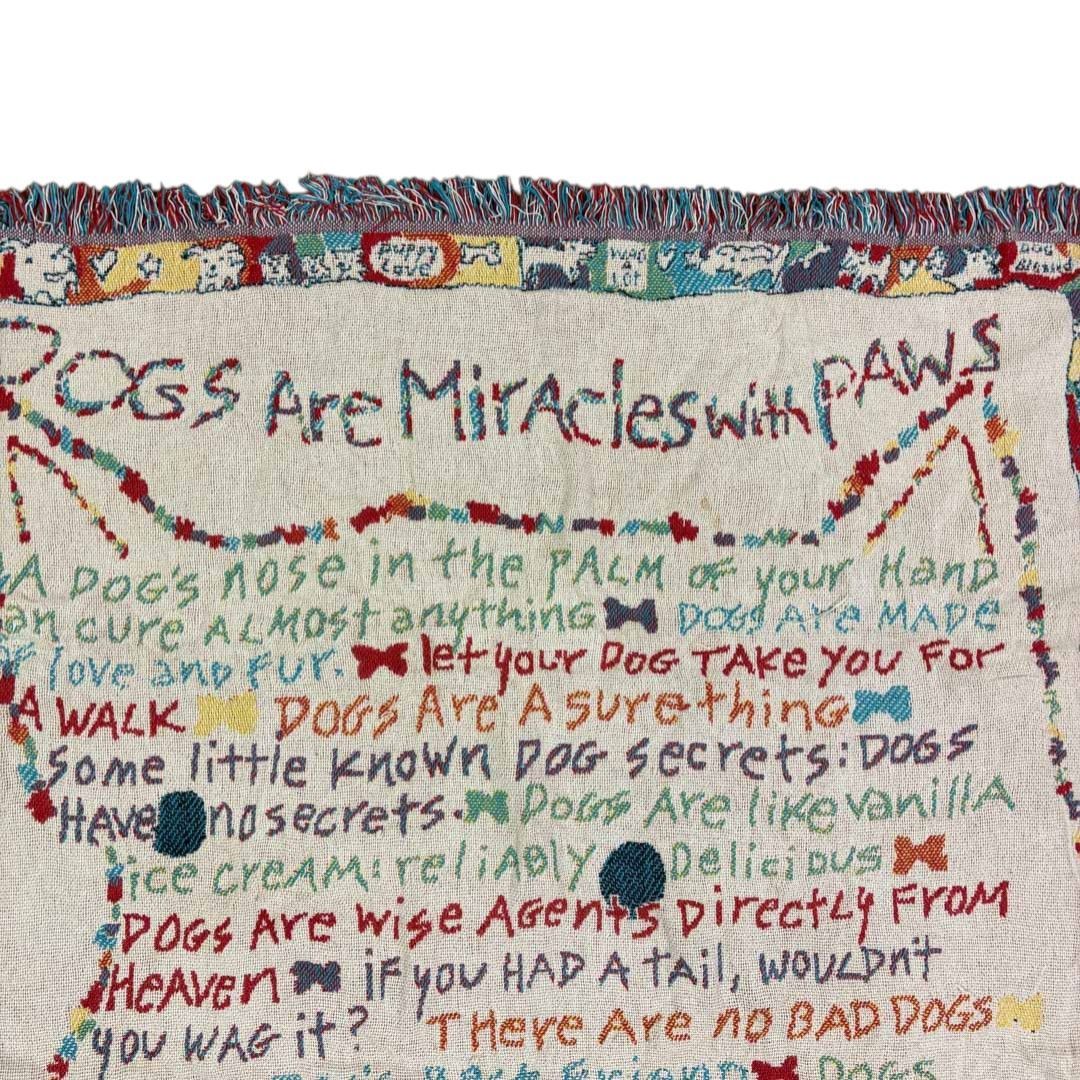 PUPPY LOVE
DOGS Are MirAcles with PAWS
A DOG'S nose in the PALM of your Hand
an cure ALMOst anything DOGS Are MADE
of love and fur. let your DOG TAKe you For
A WALK DOGS Are A sure thing
Some little known DOG secrets: DOGS
HAve no secrets. DOGS Are like vanillA
ice creAM: reliABly Delicious
DOGS Are wise Agents Directly FROM
HeAven iF you HAD A tAil, wouldn't
you WAG it? THere Are no BAD DOGS
DOGS